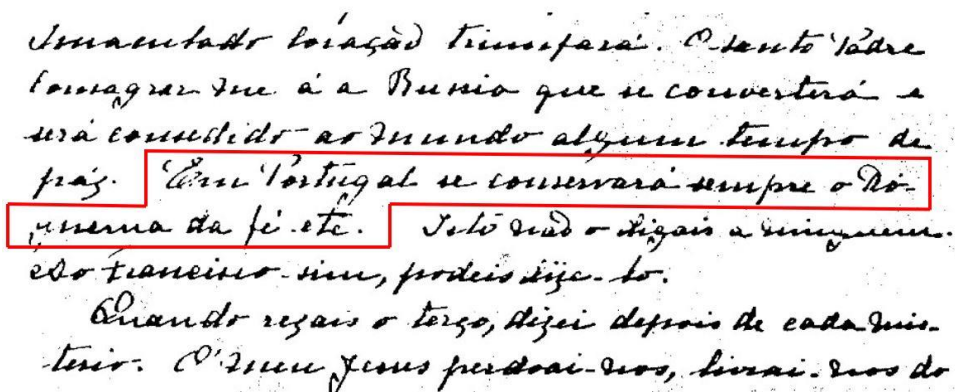 Imaculado Coração triunfará. O Santo Padre
consagrar-me-á a Russia que se converterá e
será consedido ao mundo algum tempo de
páz. Em Portugal se conservará sempre o Dó-
guema da fé etc. Isto não o digais a ninguem.
Ao Francisco sim, podeis dize-lo.
Quando rezais o terço, dizei depois de cada mis-
terio. O' meu Jesus perdoai-nos, livrai-nos do